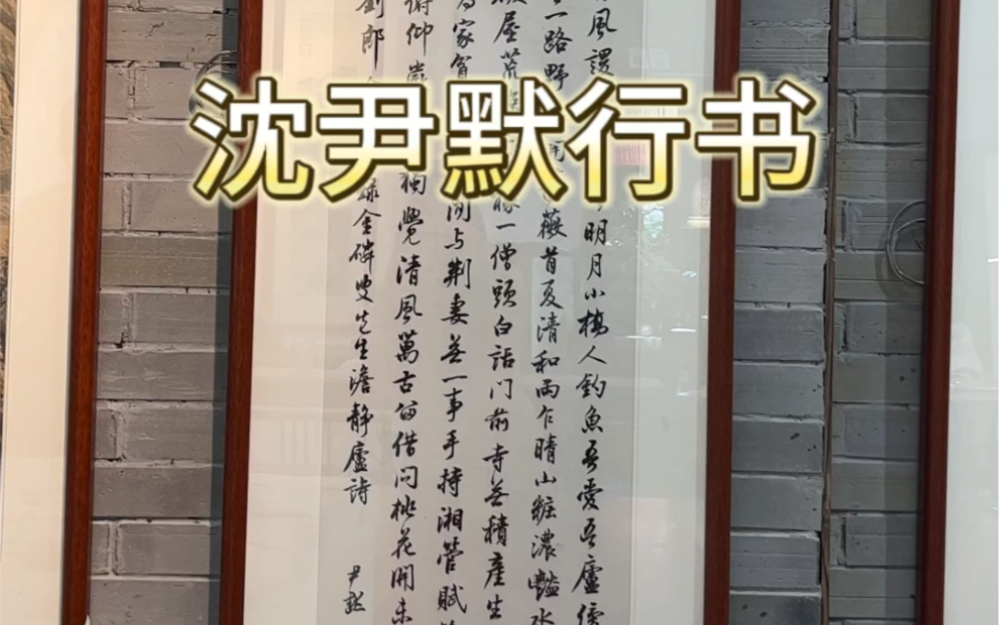 沈尹默行书
風
明月小樓人釣魚吾愛吾廬
一路野
薇首夏清和雨乍晴山粧濃豔水
屋荒
一僧頭白話門前寺無積產生
家貧
閒与荆妻無一事手持湘管賦
俯仰
獨覺清風萬古留借问桃花開未
劉郎
録金磷叟先生澹静廬詩
尹默